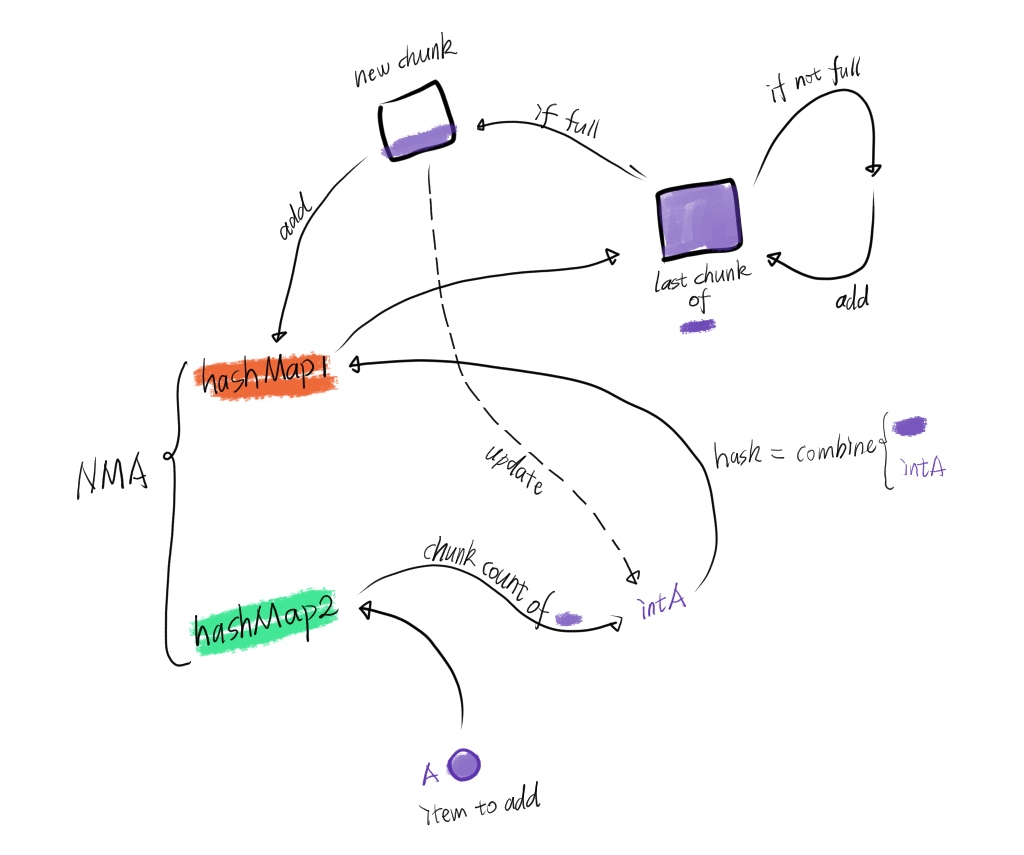 new chunk
if full
if not full
add
last chunk
of
add
hashMap1
NMA
update
hask = combine
intA
chunk count of
intA
hashMap2
A
item to add